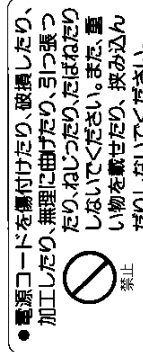 ●電源コードを傷付けたり、破損したり、
加工したり、無理に曲げたり、引っ張っ
たり、ねじったり、たばねたり
しないでください。また、重
い物を載せたり、挟み込ん
だりしないでください。
禁止